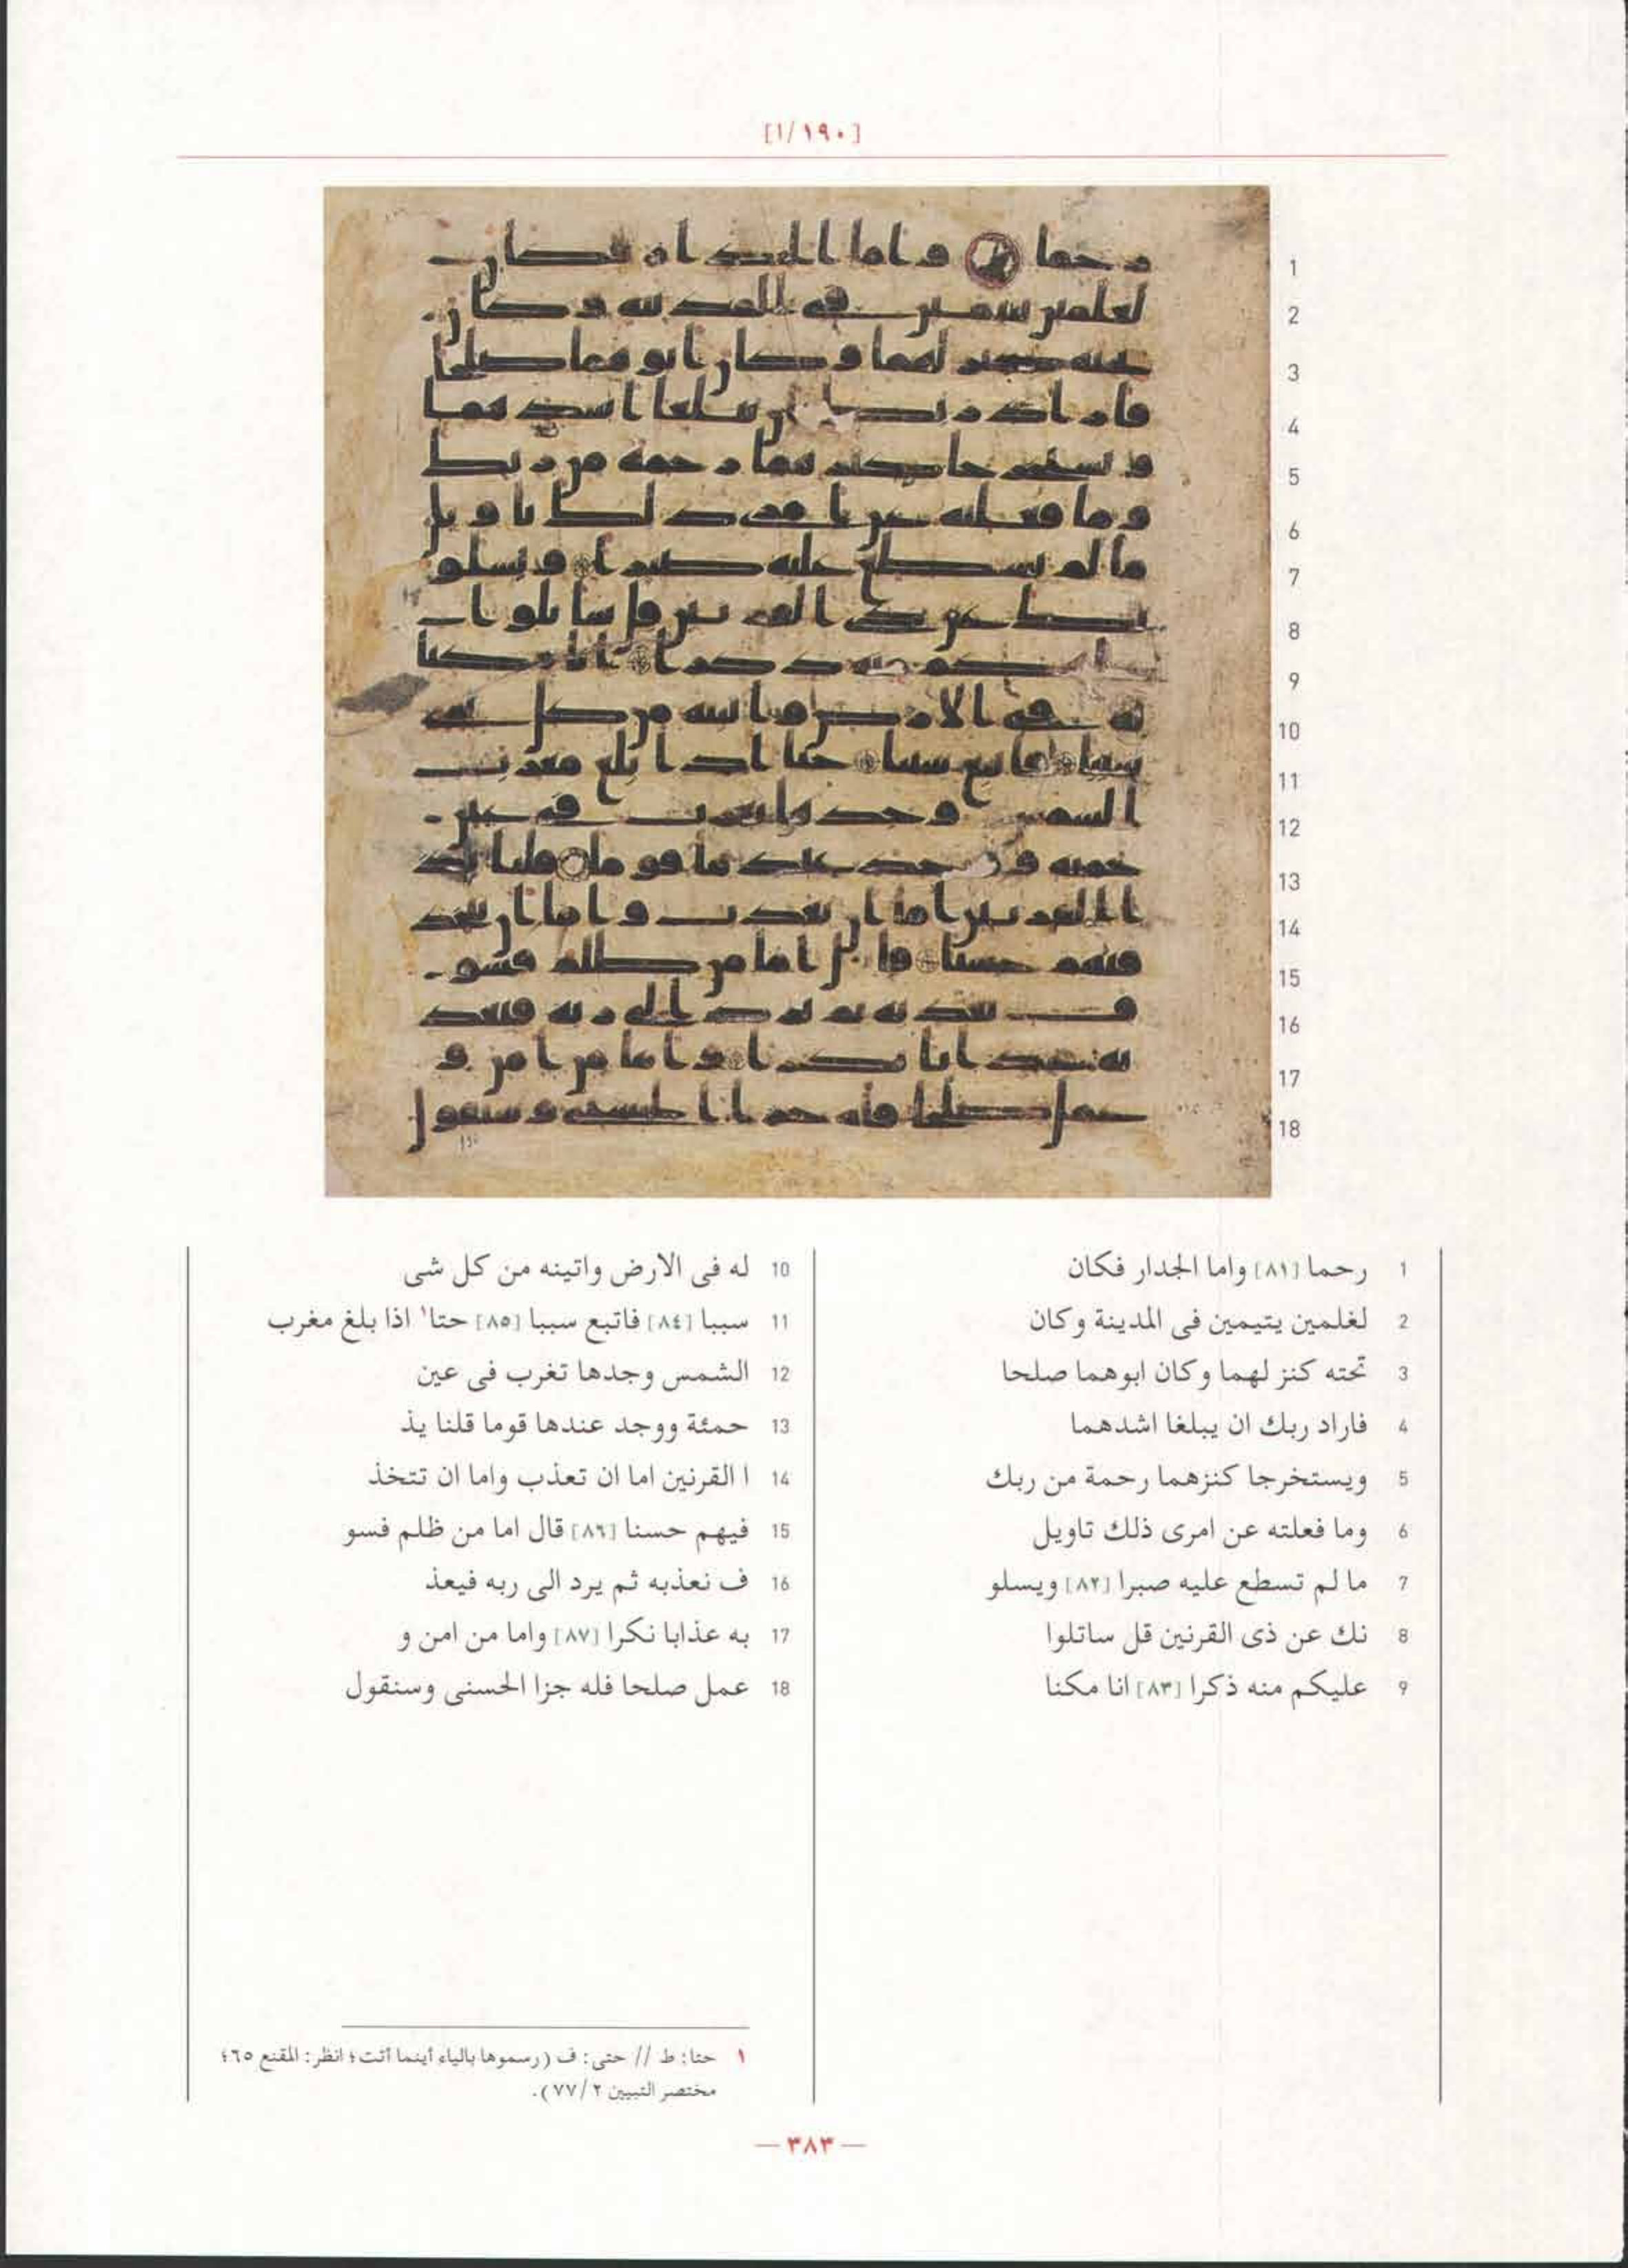 [١/١٩٠]
1 رحما [٨١] واما الجدار فكان
2 لغلمين يتيمين فى المدينة وكان
3 تحته كنز لهما وكان ابوهما صلحا
4 فاراد ربك ان يبلغا اشدهما
5 ويستخرجا كنزهما رحمة من ربك
6 وما فعلته عن امرى ذلك تاويل
7 ما لم تسطع عليه صبرا [٨٢] ويسلو
8 نك عن ذى القرنين قل ساتلوا
9 عليكم منه ذكرا [٨٣] انا مكنا
10 له فى الارض واتينه من كل شى
11 سببا [٨٤] فاتبع سببا [٨٥] حتا١ اذا بلغ مغرب
12 الشمس وجدها تغرب فى عين
13 حمئة ووجد عندها قوما قلنا يذ
14 ا القرنين اما ان تعذب واما ان تتخذ
15 فيهم حسنا [٨٦] قال اما من ظلم فسو
16 ف نعذبه ثم يرد الى ربه فيعذ
17 به عذابا نكرا [٨٧] واما من امن و
18 عمل صلحا فله جزا الحسنى وسنقول
١ حتا: ط // حتى: ف (رسموها بالياء أينما أتت؛ انظر: المقنع ٦٥؛
مختصر التبيين ٢/٧٧).
— ٣٨٣ —